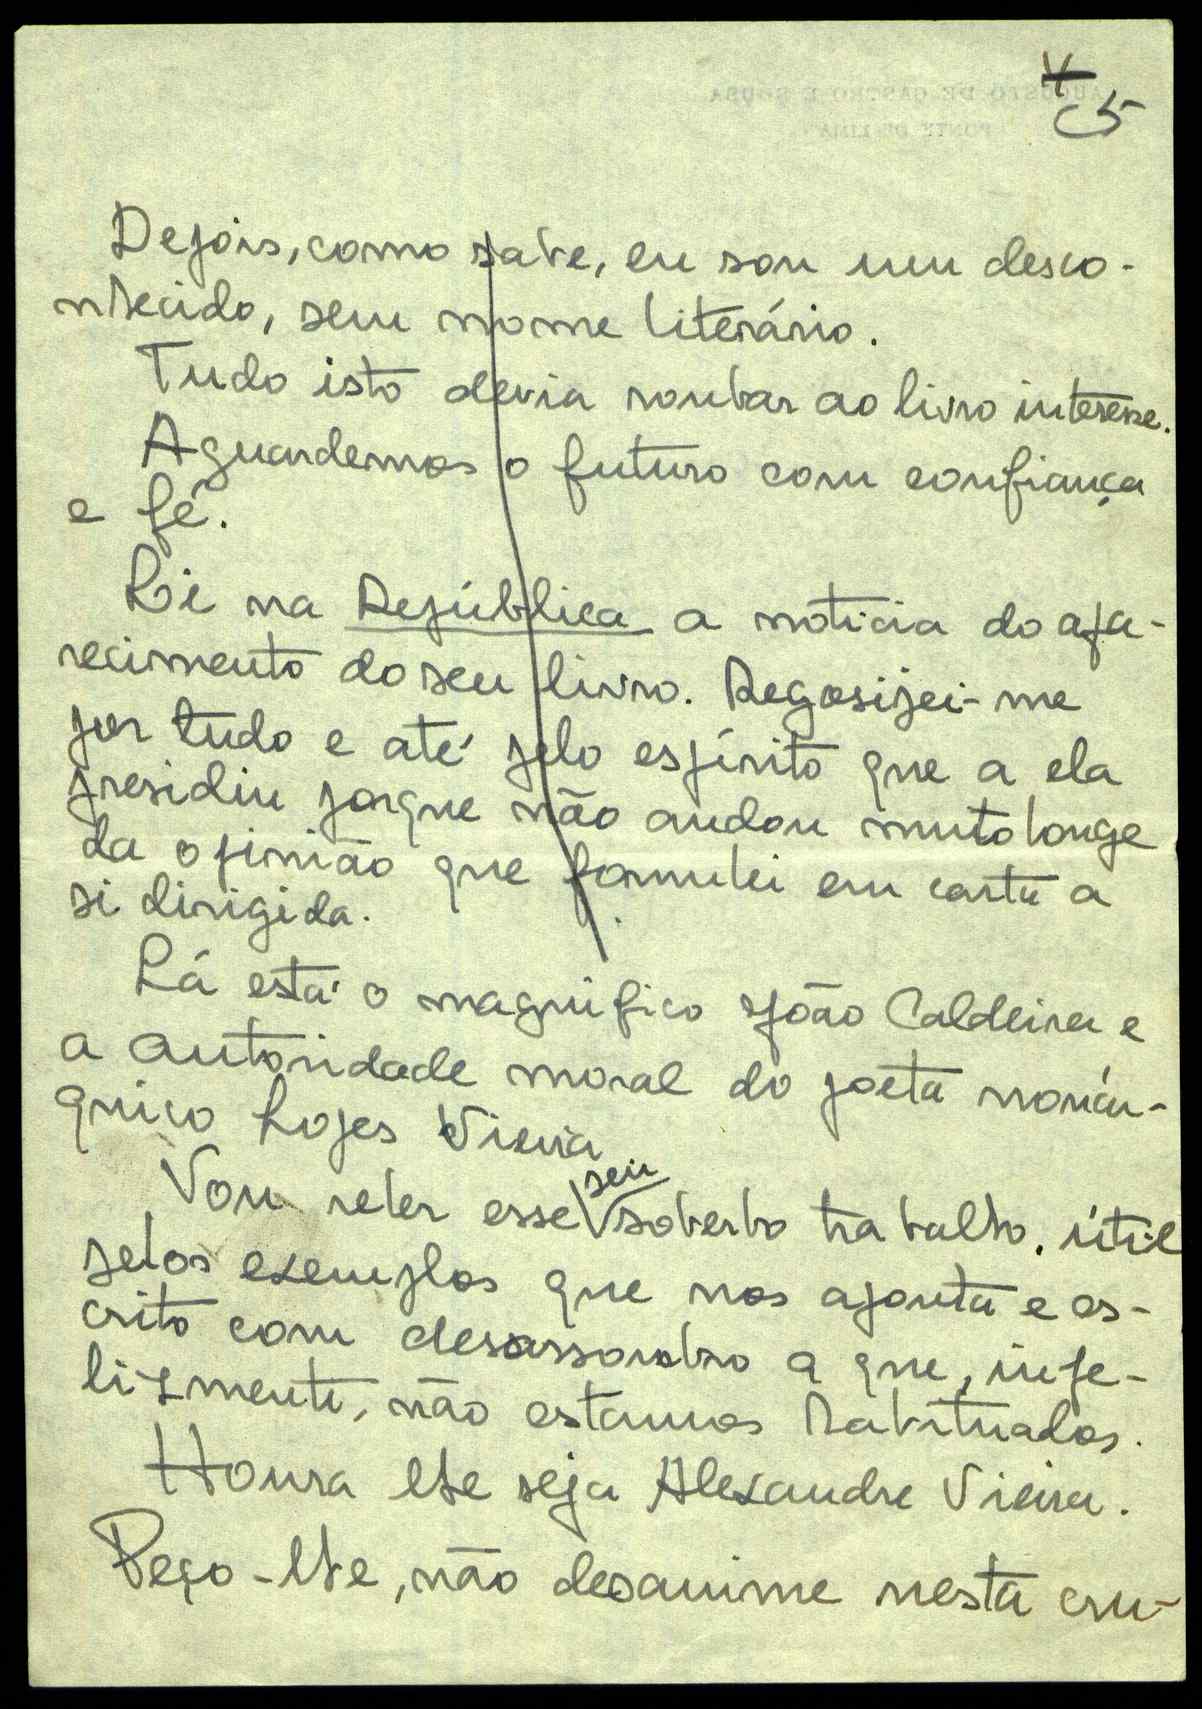 5
Depois, como sabe, eu sou um desco-
nhecido, sem nome literário.
Tudo isto devia roubar ao livro interesse.
Aguardemos o futuro com confiança
e fé.
Li na República a noticia do apa-
recimento do seu livro. Regosijei-me
por tudo e até pelo espírito que a ela
presidiu porque não andou muito longe
da opinião que formulei em carta a
si dirigida.
Lá está o magnífico João Caldeira e
a autoridade moral do poeta monár-
quico Lopes Vieira
Vou reler esse seu soberbo trabalho, útil
pelos exemplos que nos aponta e es-
crito com desassombro a que, infe-
lizmente, não estamos habituados.
Honra lhe seja Alexandre Vieira.
Peço-lhe, não desanime nesta cru-